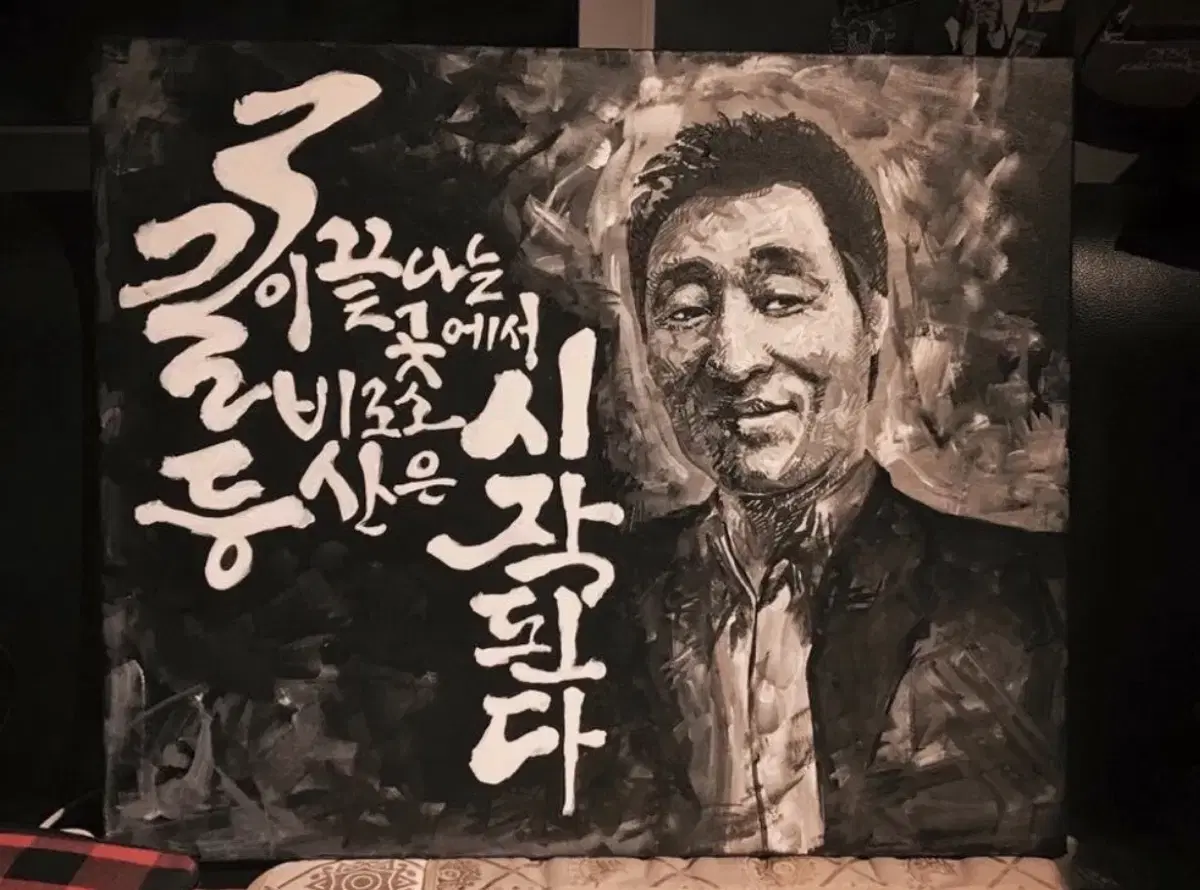 길이 끝나는
곳에서
비로소
등산은
시작된다